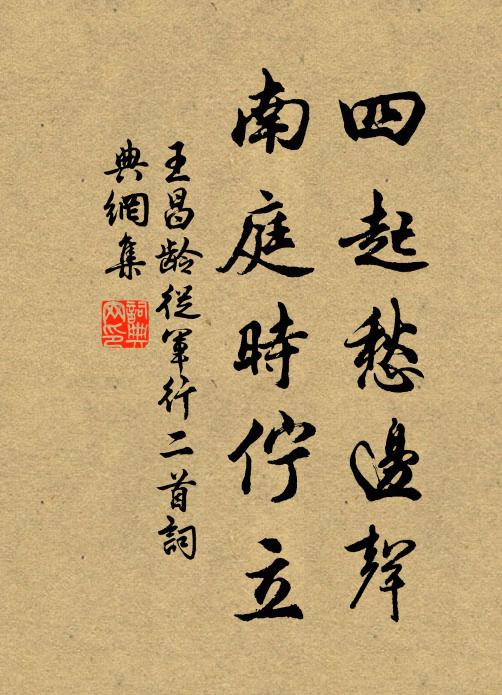 四起愁邊聲
南庭時佇立
王昌龄從軍行二首詞
典網集
詞典
网印